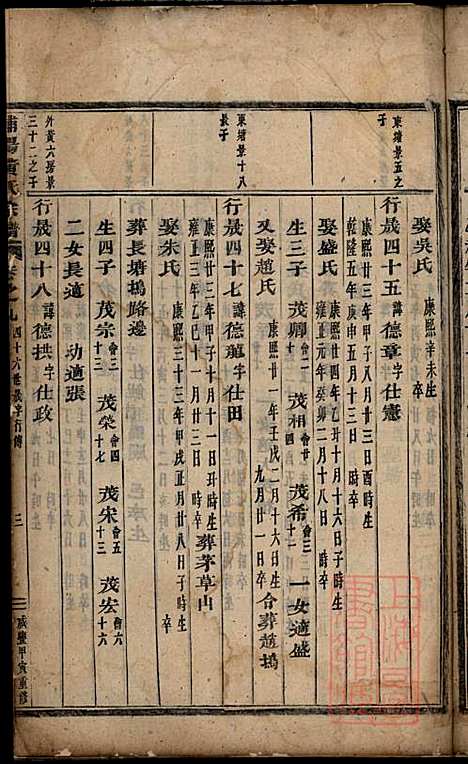 東塘景五之
子
東塘景十八
景子
外黃六房景
三十二之子
娶吳氏 康熙辛未生 卒
行晟四十五 諱德章字仕憲
康熙卅三年甲子八月廿三日酉時生
乾隆五年庚申五月十三日 時卒
娶盛氏 康熙廿四年乙丑十月十六日子時生
雍正元年癸卯二月十八日 時卒
生三子 茂卿 會一 茂相 會廿四 茂希 會三十一 一女適盛
又娶趙氏 康熙廿一年壬戌二月十六日生
九月廿一日卒 合葬趙塢
行晟四十七 諱德龍字仕田
康熙廿三年甲子十月十一日丑時生
雍正三年乙巳十一月廿三日 時卒 葬茅草山
娶朱氏 康熙三十三年甲戌正月廿八日子時生
卒
葬長塘塢路邊
生四子 茂宗 會三十三 茂榮 會四十七 茂宋 會五十三 茂宏 會六十六
二女長適 功適張
行晟四十八 諱德拱字仕政
浦陽黃氏宗譜 卷之九 四十六世晟字行傳 三 咸豐甲寅重修
上海圖書館藏